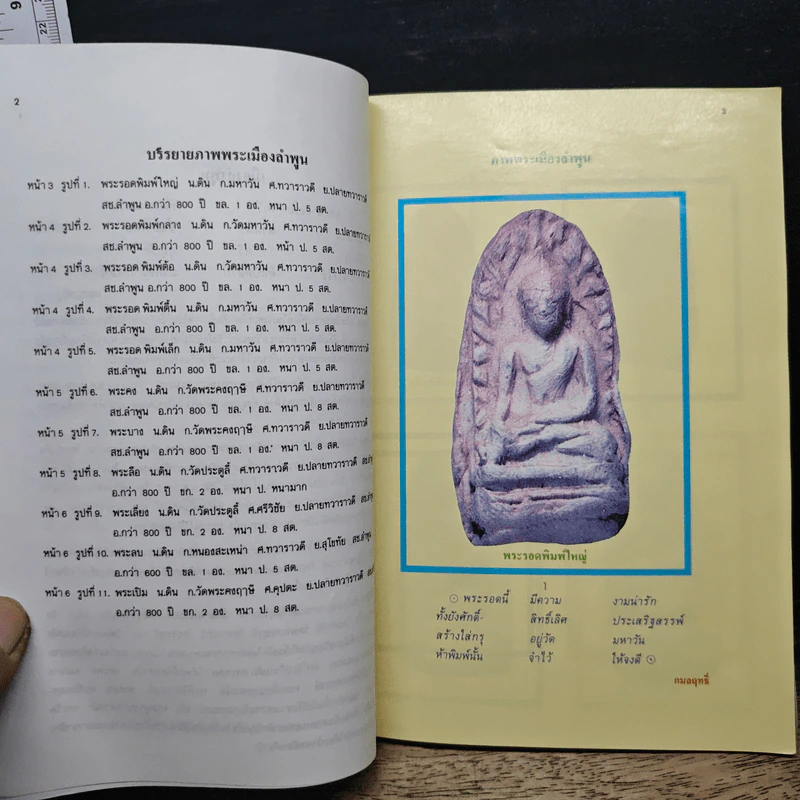 9
22
2
บรรยายภาพพระเมืองลำพูน
หน้า 3 รูปที่ 1. พระรอดพิมพ์ใหญ่ น.ดิน ก.มหาวัน ศ.ทวาราวดี ย.ปลายทวาราวดี
สช.ลำพูน อ.กว่า 800 ปี ขล. 1 อง. หนา ป. 5 สต.
หน้า 4 รูปที่ 2. พระรอดพิมพ์กลาง น.ดิน ก.วัดมหาวัน ศ.ทวาราวดี ย.ปลายทวาราวดี
สช.ลำพูน อ.กว่า 800 ปี ขล. 1 อง. หน้า ป. 5 สต.
หน้า 4 รูปที่ 3. พระรอดพิมพ์ต้อ น.ดิน ก.วัดมหาวัน ศ.ทวาราวดี ย.ปลายทวาราวดี
สช.ลำพูน อ.กว่า 800 ปี ขล. 1 อง. หนา ป. 5 สต.
หน้า 4 รูปที่ 4. พระรอดพิมพ์ตื้น น.ดิน ก.มหาวัน ศ.ทวาราวดี ย.ปลายทวาราวดี
สช.ลำพูน อ.กว่า 800 ปี ขล. 1 อง. หนา ป. 5 สต.
หน้า 4 รูปที่ 5. พระรอดพิมพ์เล็ก น.ดิน ก.มหาวัน ศ.ทวาราวดี ย.ปลายทวาราวดี
สช.ลำพูน อ.กว่า 800 ปี ขล. 1 อง. หนา ป. 5 สต.
หน้า 5 รูปที่ 6. พระคง น.ดิน ก.วัดพระคงฤาษี ศ.ทวาราวดี ย.ปลายทวาราวดี
สช.ลำพูน อ.กว่า 800 ปี ขล. 1 อง. หนา ป. 8 สต.
หน้า 5 รูปที่ 7. พระบาง น.ดิน ก.วัดพระคงฤาษี ศ.ทวาราวดี ย.ปลายทวาราวดี
สช.ลำพูน อ.กว่า 800 ปี ขล. 1 อง. หนา ป. 8 สต.
หน้า 5 รูปที่ 8. พระลือ น.ดิน ก.วัดประตูลี้ ศ.ทวาราวดี ย.ปลายทวาราวดี
อ.กว่า 800 ปี ขก. 2 อง. หนา ป. หนามาก
หน้า 6 รูปที่ 9. พระเลี่ยง น.ดิน ก.วัดประตูลี้ ศ.ศรีวิชัย ย.ปลายทวาราวดี
อ.กว่า 800 ปี ขก. 2 อง. หนา ป. 8 สต.
หน้า 6 รูปที่ 10. พระลบ น.ดิน ก.หนองสะเหน่า ศ.ทวาราวดี ย.สุโขทัย สช.ลำพูน
อ.กว่า 600 ปี ขก. 1 อง. หนา ป. 5 สต.
หน้า 6 รูปที่ 11. พระเปิม น.ดิน ก.วัดพระคงฤาษี ศ.คุปตะ ย.ปลายทวาราวดี
อ.กว่า 800 ปี ขก. 2 อง. หนา ป. 8 สต.
3
ภาพพระเมืองลำพูน
พระรอดพิมพ์ใหญ่
1
๏ พระรอดนี้ มีความ งามน่ารัก
ทั้งยังศักดิ์ สิทธิ์เลิศ ประเสริฐสรรพ์
สร้างใส่กรุ อยู่วัด มหาวัน
ห้าพิมพ์นั้น จำไว้ ให้จงดี ๏
กมลฤทธิ์